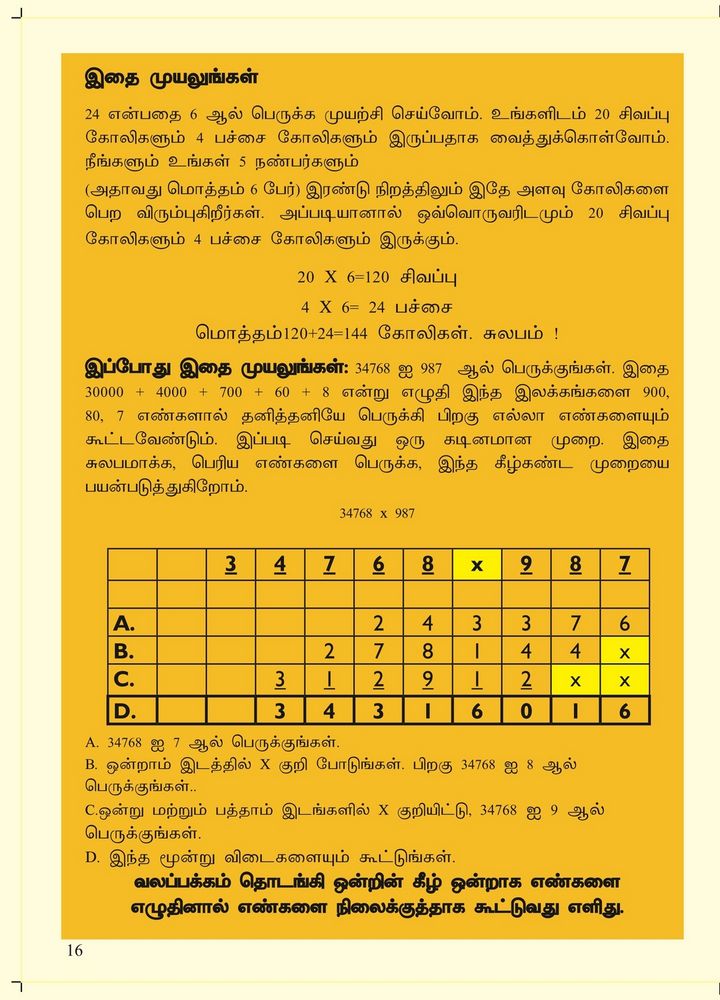 இதை முயலுங்கள்
24 என்பதை 6 ஆல் பெருக்க முயற்சி செய்வோம். உங்களிடம் 20 சிவப்பு
கோலிகளும் 4 பச்சை கோலிகளும் இருப்பதாக வைத்துக்கொள்வோம்.
நீங்களும் உங்கள் 5 நண்பர்களும்
(அதாவது மொத்தம் 6 பேர்) இரண்டு நிறத்திலும் இதே அளவு கோலிகளை
பெற விரும்புகிறீர்கள். அப்படியானால் ஒவ்வொருவரிடமும் 20 சிவப்பு
கோலிகளும் 4 பச்சை கோலிகளும் இருக்கும்.
20 X 6=120 சிவப்பு
4 X 6= 24 பச்சை
மொத்தம்120+24=144 கோலிகள். சுலபம் !
இப்போது இதை முயலுங்கள்: 34768 ஐ 987 ஆல் பெருக்குங்கள். இதை
30000 + 4000 + 700 + 60 + 8 என்று எழுதி இந்த இலக்கங்களை 900,
80, 7 எண்களால் தனித்தனியே பெருக்கி பிறகு எல்லா எண்களையும்
கூட்டவேண்டும். இப்படி செய்வது ஒரு கடினமான முறை. இதை
சுலபமாக்க, பெரிய எண்களை பெருக்க, இந்த கீழ்கண்ட முறையை
பயன்படுத்துகிறோம்.
34768 x 987
3 4 7 6 8 x 9 8 7
A. 2 4 3 3 7 6
B. 2 7 8 1 4 4 x
C. 3 1 2 9 1 2 x x
D. 3 4 3 1 6 0 1 6
A. 34768 ஐ 7 ஆல் பெருக்குங்கள்.
B. ஒன்றாம் இடத்தில் X குறி போடுங்கள். பிறகு 34768 ஐ 8 ஆல்
பெருக்குங்கள்..
C.ஒன்று மற்றும் பத்தாம் இடங்களில் X குறியிட்டு, 34768 ஐ 9 ஆல்
பெருக்குங்கள்.
D. இந்த மூன்று விடைகளையும் கூட்டுங்கள்.
வலப்பக்கம் தொடங்கி ஒன்றின் கீழ் ஒன்றாக எண்களை
எழுதினால் எண்களை நிலைக்குத்தாக கூட்டுவது எளிது.
16